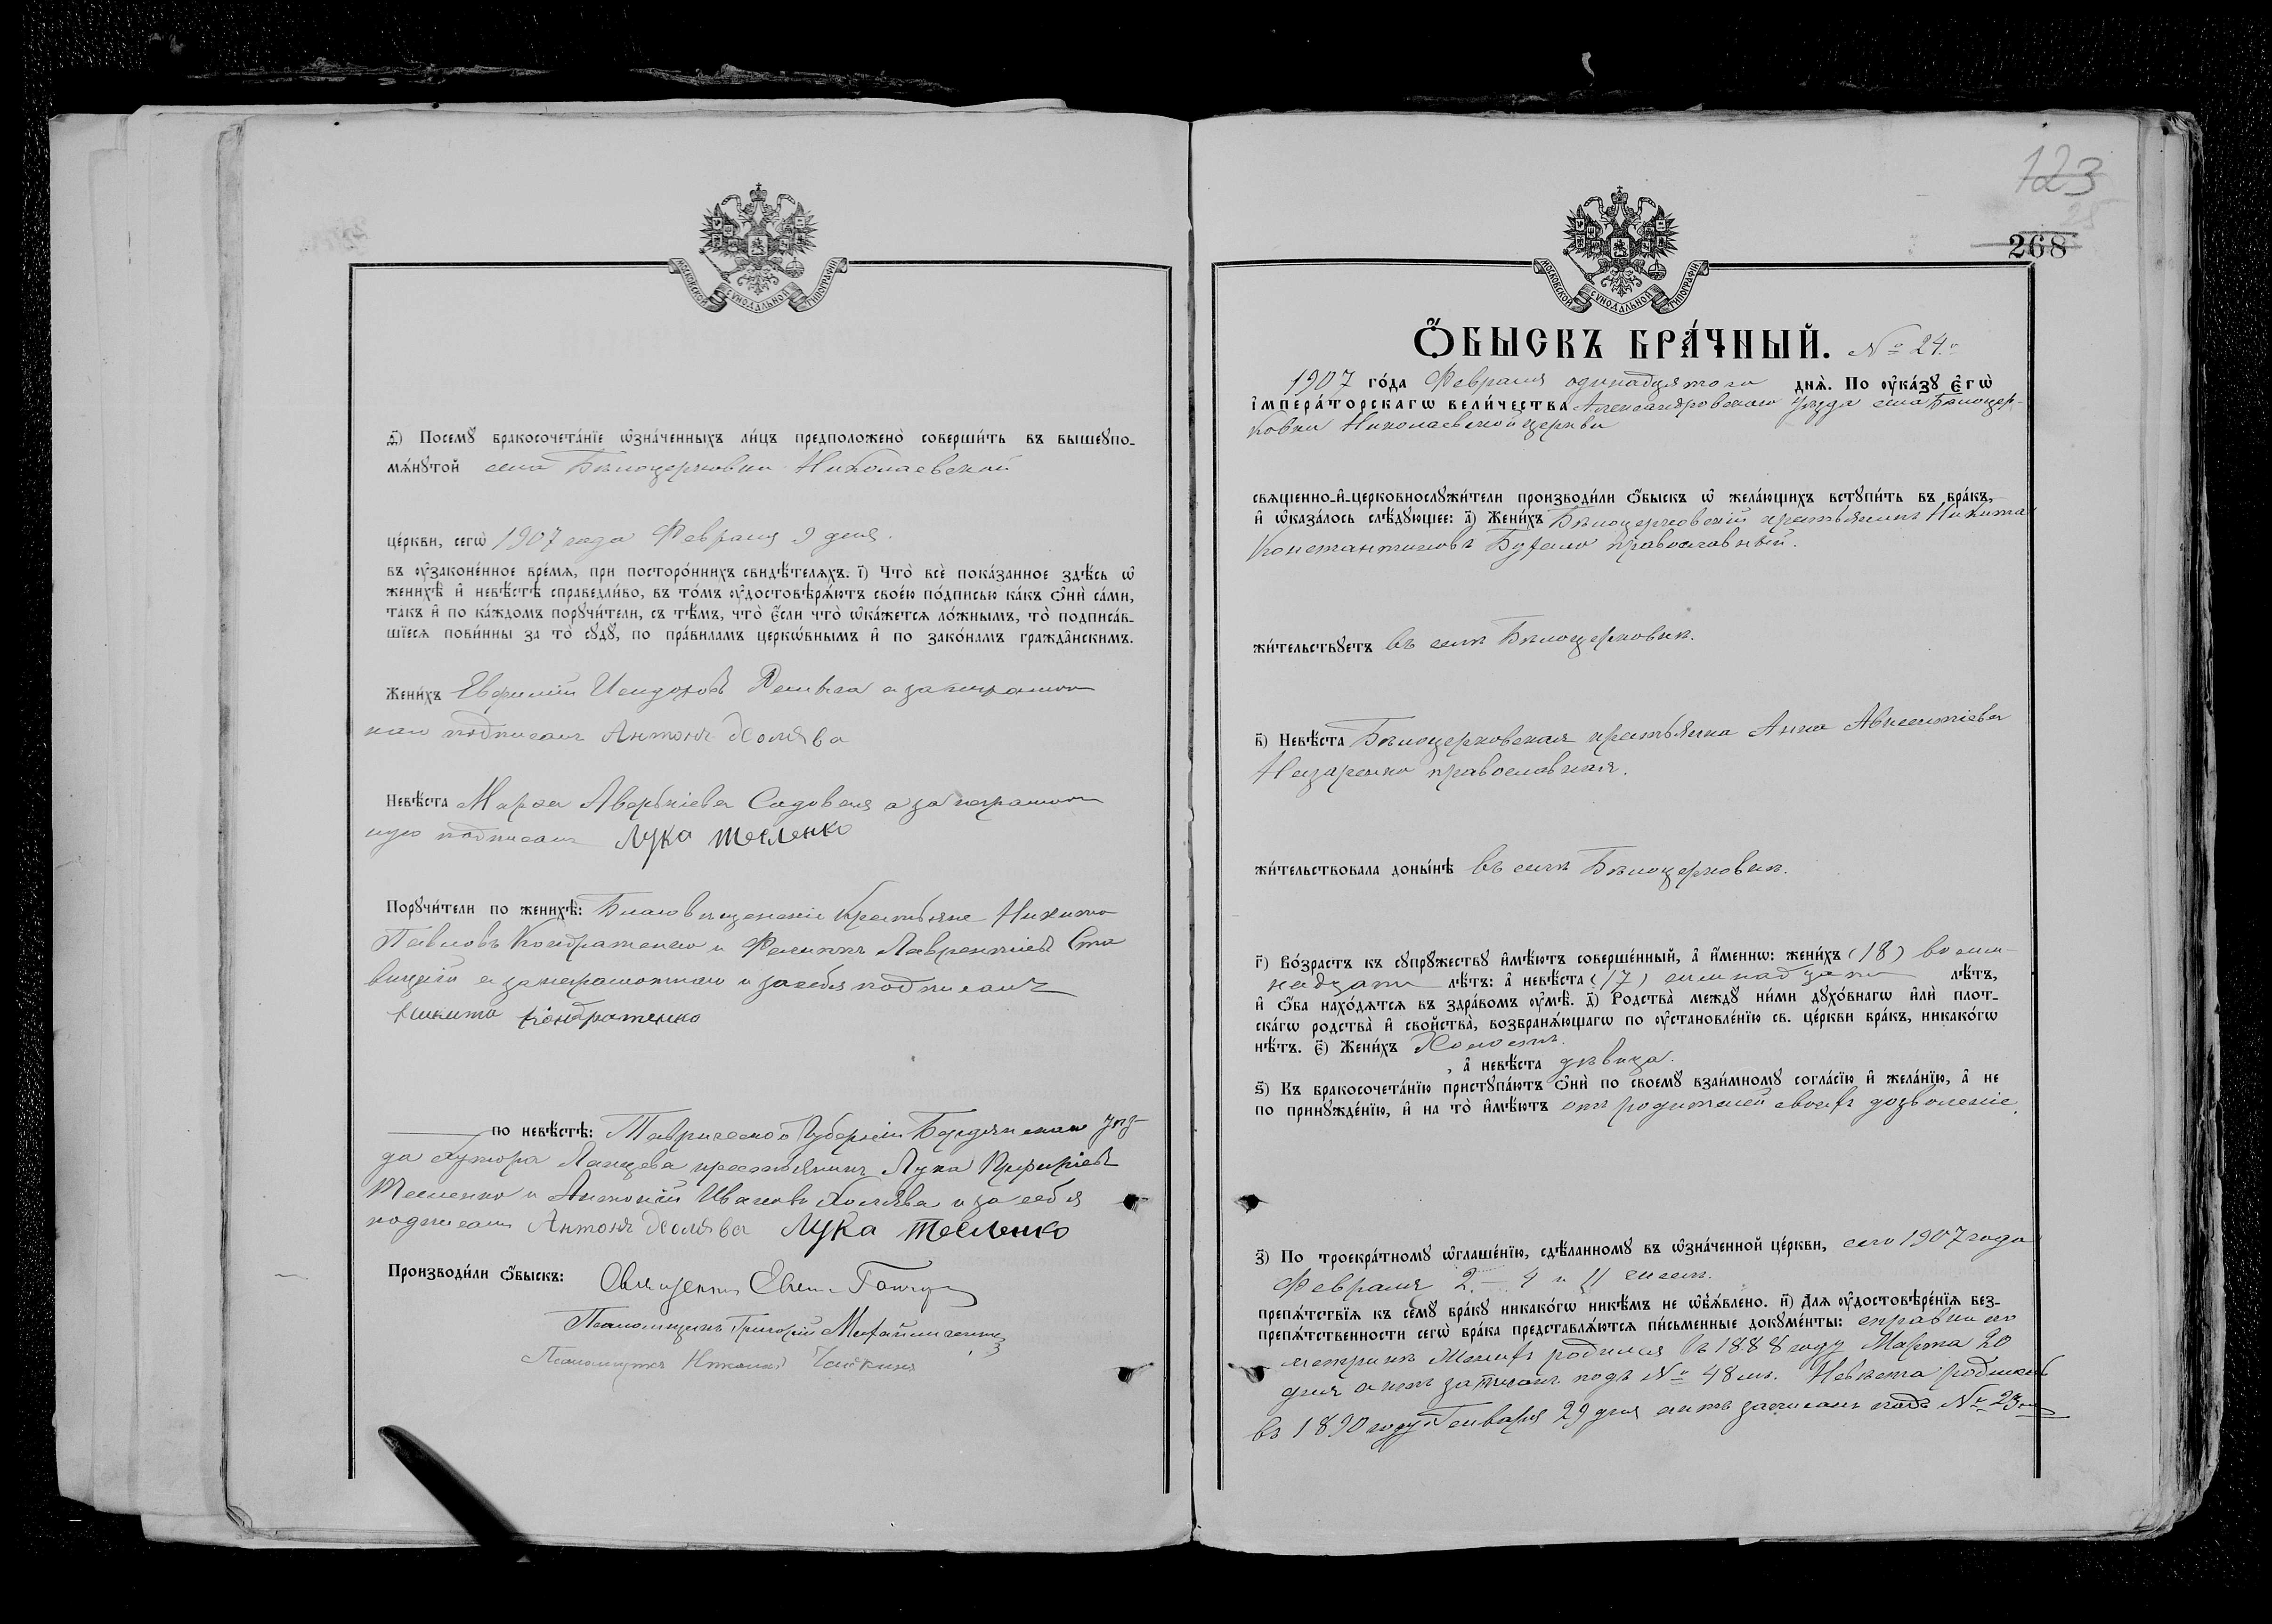 МОСКОВСКОЙ СУНОДАЛЬНОЙ ТИПОГРАФІИ
д҃) Посемꙋ бракосочета́нїе ѡ҆зна́ченныхъ ли́цъ предположено̀ соверши́ть въ вышеꙋпо-
мѧ́нꙋтой села Бѣлоцерковки Николаевской
це́ркви, сегѡ̀ 1907 года Февраля 9 дня.
въ ᲂу҆законе́нное вре́мѧ, при посторо́ннихъ свидѣ́телѧхъ. і҃) Что̀ всѐ пока́занное здѣ́сь ѡ҆
женихѣ̀ и҆ невѣ́стѣ справедли́во, въ то́мъ ᲂу҆достовѣрѧ́ютъ свое́ю по́дписью ка́къ ѻ҆нѝ са́ми,
та́къ и҆ по ка́ждомъ порꙋчи́тели, съ тѣ́мъ, что̀ є҆́сли что̀ ѡ҆ка́жетсѧ ло́жнымъ, то̀ подписа́в-
шїесѧ пови́нны за то̀ сꙋдꙋ̀, по пра́виламъ церкѡ́внымъ и҆ по зако́намъ гражда̑нскимъ.
Жени́хъ Евфимій Исидоровъ а за неграмот
наго подписалъ Антонъ Холява
Невѣ́ста Марфа Аверкіева Садовая а за неграмот
ную подписалъ Лука Тесленко
Порꙋчи́тели по женихѣ̀: Благовѣщенскіе Крестьяне Никита
Павловъ Кондратенко и Филиппъ Лаврентіевъ Ста
вицкій а за неграмотнаго и за себя подписалъ
Никита Кондратенко
по невѣ́стѣ: Таврической Губерніи Бердянскаго уѣз-
да хутора крестьянинъ Лука
Тесленко и Антоній Ивановъ Холява и за себя
подписали Антонъ Холява Лука Тесленко
Производи́ли ѻ҆́быскъ: Священникъ
Псаломщикъ Григорій
Псаломщикъ Николай
123
268
МОСКОВСКОЙ СУНОДАЛЬНОЙ ТИПОГРАФІИ
Ѻ҆́БЫСКЪ БРА́ЧНЫЙ. № 24.
1907 го́да Февраля одинадцятого днѧ̀. По ᲂу҆ка́зꙋ є҆гѡ̀
і҆мпера́торскагѡ вели́чества Александровскаго Уѣзда села Бѣлоцер-
ковки Николаевской церкви
свѧще́нно-и҆-церковнослꙋжи́тели производи́ли ѻ҆́быскъ ѡ҆ жела́ющихъ встꙋпи́ть въ бра́къ,
и҆ ѡ҆каза́лось слѣ́дꙋющее: а҃) Жени́хъ Бѣлоцерковскій крестьянинъ Никита
Константиновъ Бутко православный.
жи́тельствꙋетъ въ селѣ Бѣлоцерковкѣ.
в҃) Невѣ́ста Бѣлоцерковская крестьянка Анна Авксентіева
Назаренко православная.
жи́тельствовала доны́нѣ въ селѣ Бѣлоцерковкѣ.
г҃) Во́зрастъ къ сꙋпрꙋ́жествꙋ и҆мѣ́ютъ соверше́нный, а҆ и҆́меннѡ: жени́хъ (18) восем-
надцати лѣ́тъ: а҆ невѣ́ста (17) семнадцати лѣ́тъ,
и҆ ѻ҆́ба нахо́дѧтсѧ въ здра́вомъ ᲂу҆мѣ̀. д҃) Родства̀ междꙋ̀ ни́ми дꙋхо́внагѡ и҆лѝ плот-
ска́гѡ родства̀ и҆ сво́йства̀, возбранѧ́ющагѡ по ᲂу҆становле́нїю св. це́ркви бра́къ, никако́гѡ
нѣ́тъ. є҃) Жени́хъ Холостъ.
, а҆ невѣ́ста дѣвица.
ѕ҃) Къ бракосочета́нїю пристꙋпа́ютъ ѻ҆нѝ по своемꙋ̀ взаи́мномꙋ согла́сїю и҆ жела́нїю, а҆ не
по принꙋжде́нїю, и҆ на то̀ и҆мѣ́ютъ отъ родителей своихъ дозволеніе.
з҃) По троекра́тномꙋ ѡ҆глаше́нїю, сдѣ́ланномꙋ въ ѡ҆зна́ченной це́ркви, сего 1907 года
Февраля 2 - 4 и 11 чиселъ.
препѧ́тствїѧ къ семꙋ̀ бра́кꙋ никако́гѡ никѣ́мъ не ѡ҆б̾ѧ́влено. и҃) Длѧ ᲂу҆достовѣре́нїѧ без-
препѧ́тственности сегѡ̀ бра́ка представлѧ́ютсѧ пи́сьменные докꙋме́нты: справки по
метрикѣ Женихъ родился въ 1888 году Марта 20
дня актъ записанъ подъ № 48мъ. Невѣста родилась
въ 1890 году Генваря 29 дня актъ записанъ подъ № 23мъ